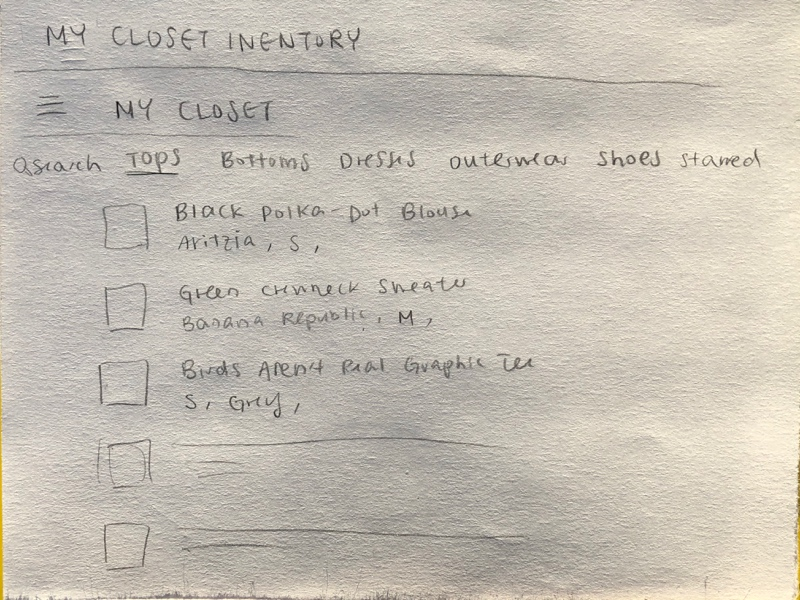 MY CLOSET INENTORY
MY CLOSET
Search TOPS Bottoms Dresses outerwear shoes starred
Black Polka-Dot Blouse
Aritzia, S,
Green crewneck sweater
Banana Republic, M,
Birds Aren't Real Graphic Tee
S, Grey,